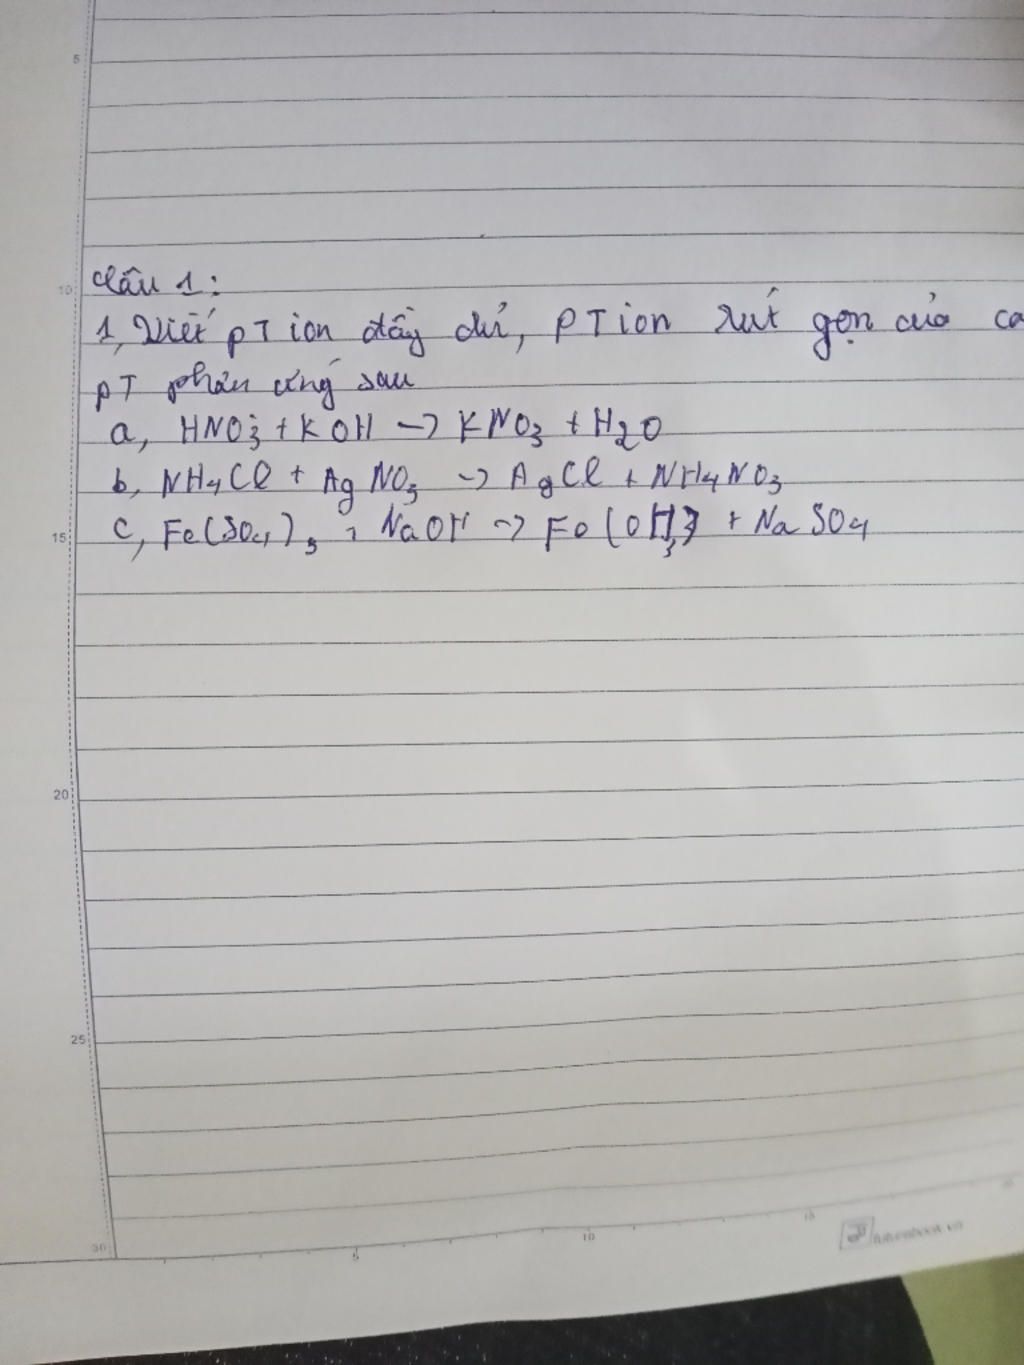 5
10
Câu 1:
1, Viết PT ion đầy đủ, PT ion rút gọn của cá
PT phản ứng sau
a, HNO3 + KOH -> KNO3 + H2O
b, NH4Cl + AgNO3 -> AgCl + NH4NO3
c, Fe(SO4)3 + NaOH -> Fe(OH)3 + NaSO4
15
20
25
30
5 10 15
futurebook.vn